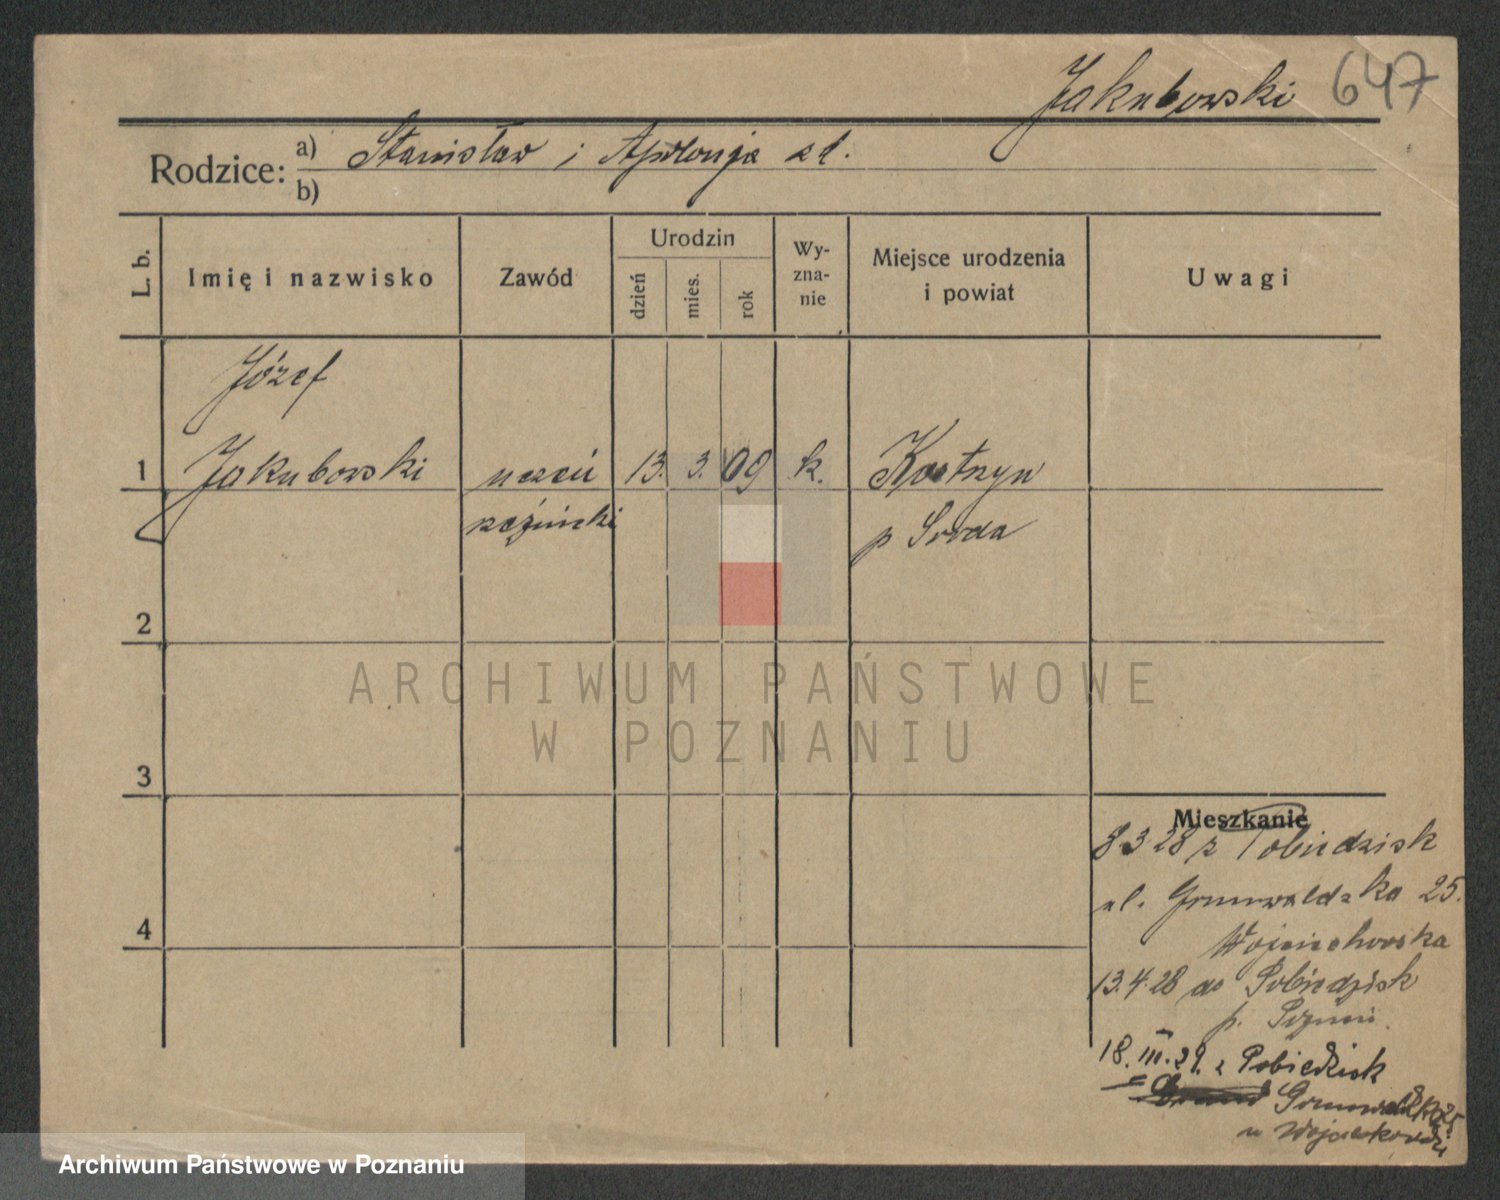 Jakubowski 647
Rodzice:
a) Stanisław i Apolonja
b)
L. b.
Imię i nazwisko
Zawód
Urodzin
dzień
mies.
rok
Wy-
zna-
nie
Miejsce urodzenia
i powiat
Uwagi
Józef
1 Jakubowski uczeń 13. 3. 09 k. Kostrzyn
rzeźnicki p Środa
2
ARCHIWUM PAŃSTWOWE
W POZNANIU
3
Mieszkanie
8.3.28 z Pobiedzisk
ul. Grunwaldzka 25.
Wojciechowska
13.4.28 do Pobiedzisk
4
p. Poznań
18.III.29. z Pobiedzisk
Grunwaldzka 25
u Wojciechowski
Archiwum Państwowe w Poznaniu